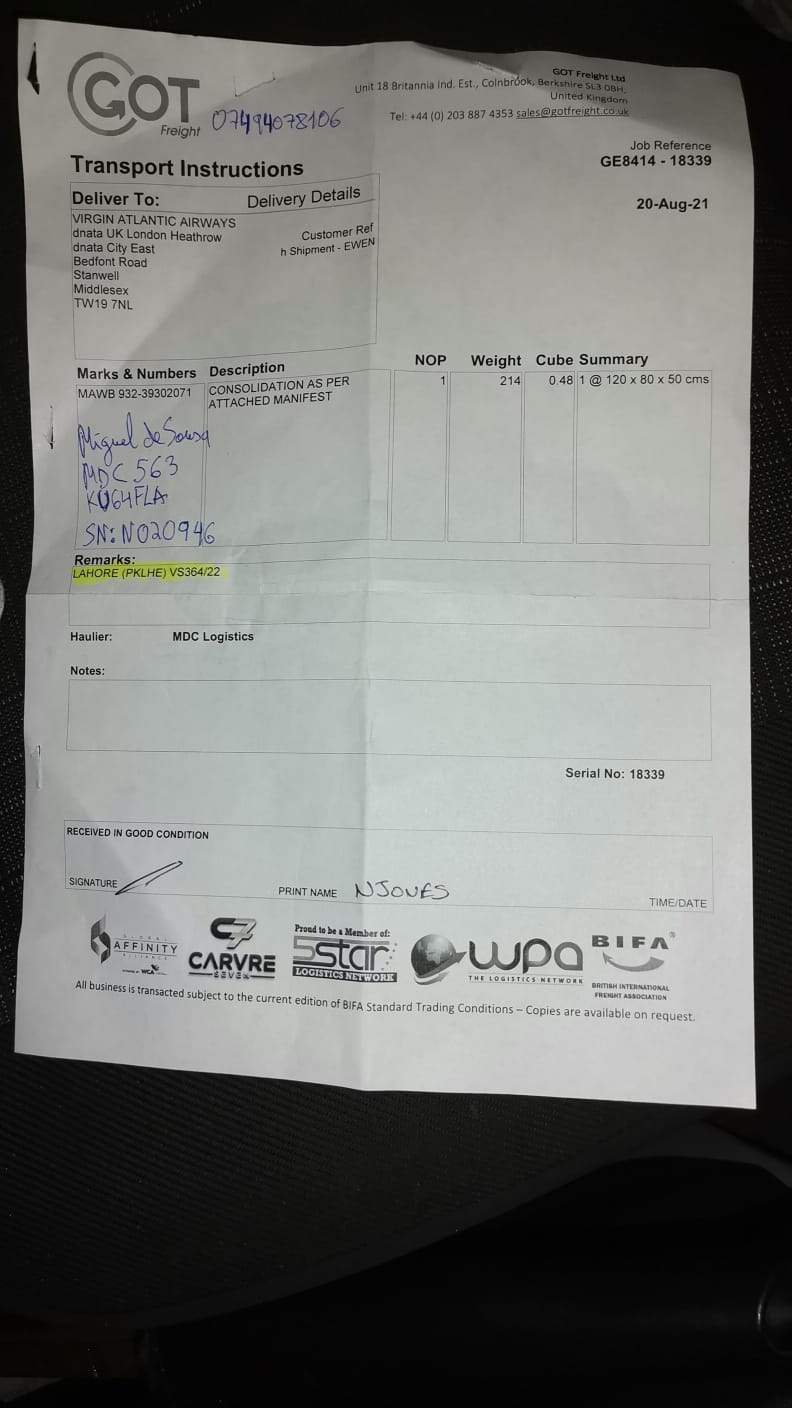 GOT
Freight
07494078106
GOT Freight Ltd
Unit 18 Britannia Ind. Est., Colnbrook, Berkshire SL3 0BH,
United Kingdom
Tel: +44 (0) 203 887 4353 sales@gotfreight.co.uk
Job Reference
GE8414 - 18339
20-Aug-21
Transport Instructions
Deliver To: Delivery Details
VIRGIN ATLANTIC AIRWAYS
dnata UK London Heathrow
dnata City East
Bedfont Road
Stanwell
Middlesex
TW19 7NL
Customer Ref
h Shipment - EWEN
Marks & Numbers Description NOP Weight Cube Summary
MAWB 932-39302071 CONSOLIDATION AS PER ATTACHED MANIFEST 1 214 0.48 1 @ 120 x 80 x 50 cms
Miguel de Sousa
MDC 563
KU64FLA
SN: NO20946
Remarks:
LAHORE (PKLHE) VS364/22
Haulier: MDC Logistics
Notes:
Serial No: 18339
RECEIVED IN GOOD CONDITION
SIGNATURE PRINT NAME NJONES TIME/DATE
AFFINITY
WCA
C7
CARVRE
SEVEN
Proud to be a Member of:
5star
LOGISTICS NETWORK
wpa
THE LOGISTICS NETWORK
BIFA®
BRITISH INTERNATIONAL
FREIGHT ASSOCIATION
All business is transacted subject to the current edition of BIFA Standard Trading Conditions – Copies are available on request.